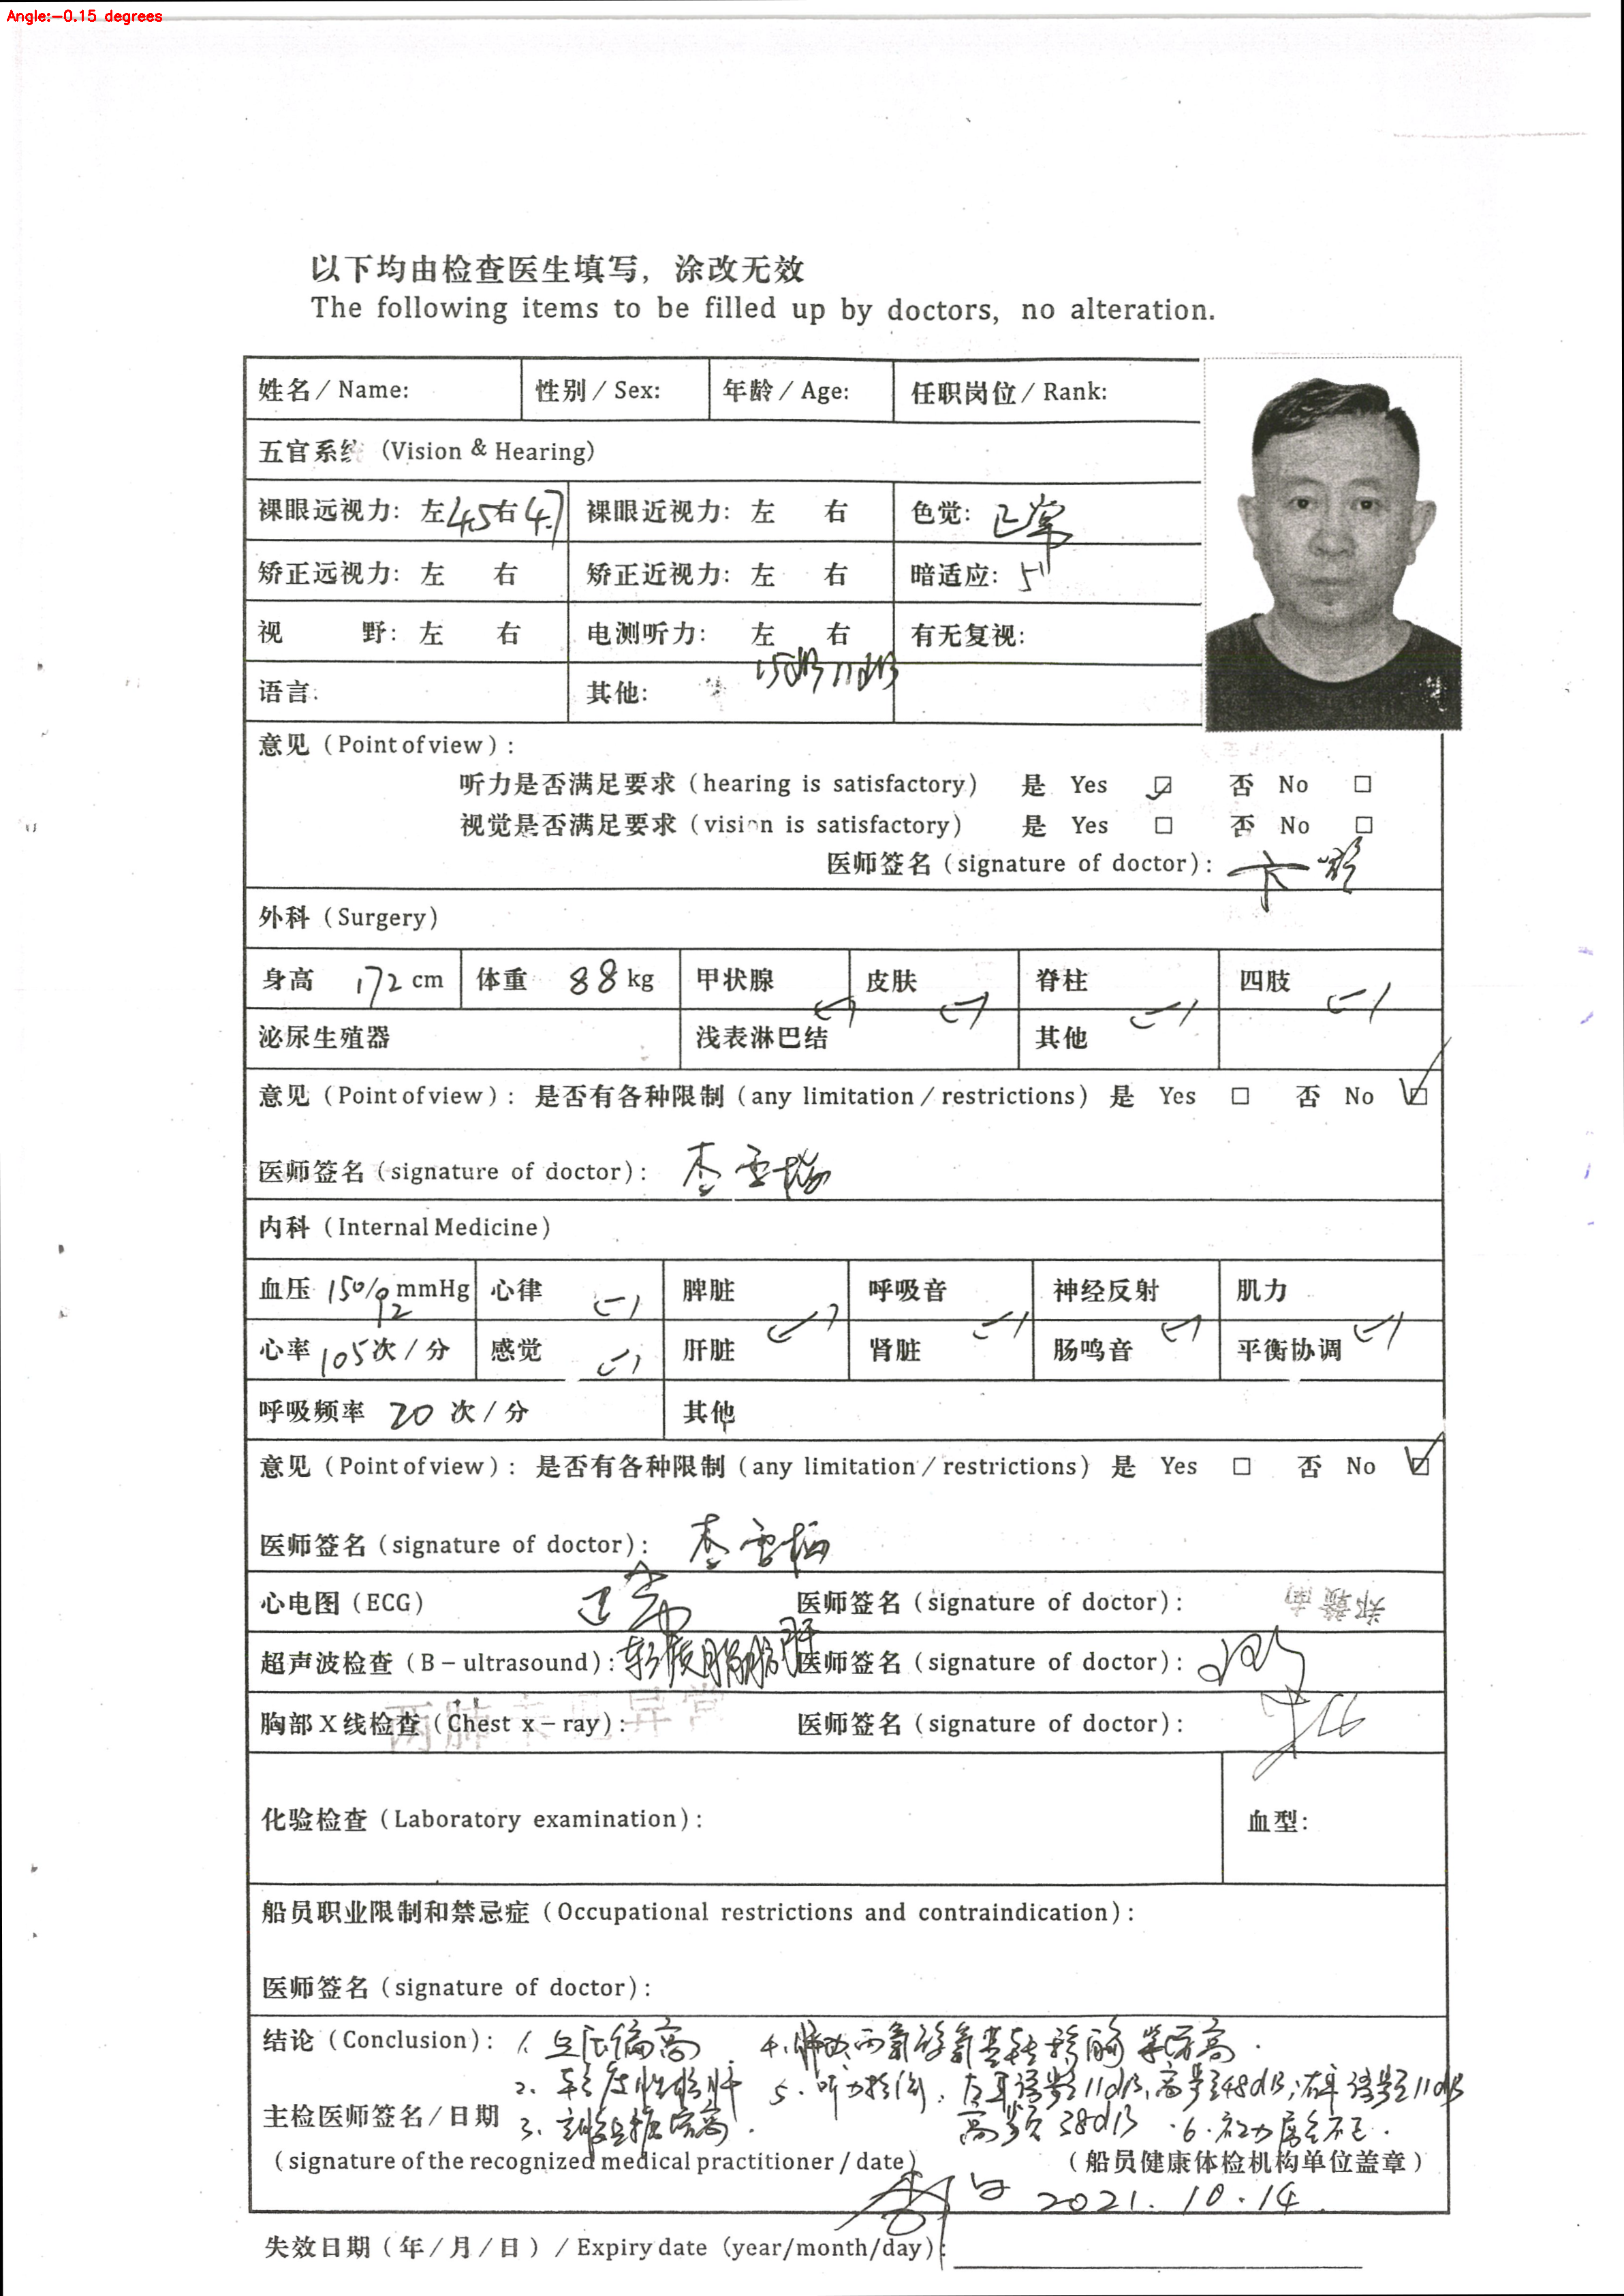 Angle:-0.15 degrees
以下均由检查医生填写，涂改无效
The following items to be filled up by doctors, no alteration.
姓名/Name: 性别/Sex: 年龄/Age: 任职岗位/Rank:
五官系统 (Vision & Hearing)
裸眼远视力: 左 4.5 右 4.7 裸眼近视力: 左 右 色觉: 正常
矫正远视力: 左 右 矫正近视力: 左 右 暗适应: 5"
视 野: 左 右 电测听力: 左 右 有无复视:
语言: 其他: 15dB 11dB
意见 (Point of view):
听力是否满足要求 (hearing is satisfactory) 是 Yes ☑ 否 No □
视觉是否满足要求 (vision is satisfactory) 是 Yes □ 否 No □
医师签名 (signature of doctor):
外科 (Surgery)
身高 172 cm 体重 88 kg 甲状腺 (-) 皮肤 (-) 脊柱 (-) 四肢 (-)
泌尿生殖器 浅表淋巴结 其他
意见 (Point of view): 是否有各种限制 (any limitation/restrictions) 是 Yes □ 否 No ☑
医师签名 (signature of doctor): 李雪梅
内科 (Internal Medicine)
血压 150/92 mmHg 心律 (-) 脾脏 (-) 呼吸音 (-) 神经反射 (-) 肌力 (-)
心率 105 次/分 感觉 (-) 肝脏 肾脏 肠鸣音 平衡协调
呼吸频率 20 次/分 其他
意见 (Point of view): 是否有各种限制 (any limitation/restrictions) 是 Yes □ 否 No ☑
医师签名 (signature of doctor): 李雪梅
心电图 (ECG) 正常 医师签名 (signature of doctor): 郑赣南
超声波检查 (B-ultrasound): 轻度脂肪肝 医师签名 (signature of doctor):
胸部X线检查 (Chest x-ray): 两肺未见异常 医师签名 (signature of doctor):
化验检查 (Laboratory examination): 血型:
船员职业限制和禁忌症 (Occupational restrictions and contraindication):
医师签名 (signature of doctor):
结论 (Conclusion): 1. 血压偏高 4. 丙氨酸氨基转移酶 高.
2. 轻度脂肪肝 5. 听力检测: 左耳语频11dB, 高频48dB; 右耳语频11dB
主检医师签名/日期 3. 血糖偏高. 高频38dB. 6.
(signature of the recognized medical practitioner/date) (船员健康体检机构单位盖章)
2021.10.14
失效日期 (年/月/日) / Expiry date (year/month/day):